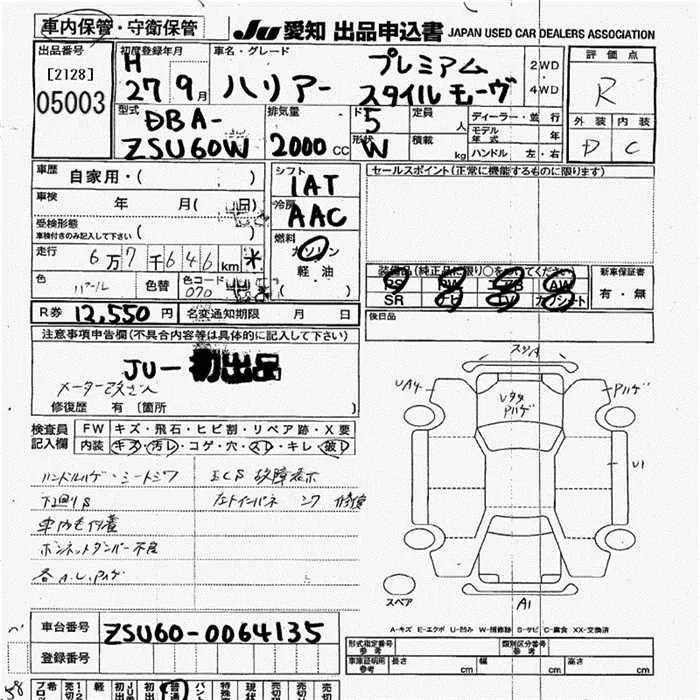 車内保管・守衛保管
JU 愛知 出品申込書 JAPAN USED CAR DEALERS ASSOCIATION
出品番号
[2128]
05003
初度登録年月
H
27 9月
車名・グレード
ハリアー
プレミアム
スタイルモーヴ
2WD
4WD
評価点
R
外装 内装
D C
型式
DBA-
ZSU60W
排気量
2000 CC
ド
5
形状
W
定員
人
積載
kg
ディーラー・並 行
モデル年式 年
ハンドル 左・右
車歴
自家用・( )
車検
年 月( 日)
受検形態
車検付きのみ記入して下さい ( )
走行
6万7千646km *
色
パール
色替
色コード
070
( )
シフト
IAT
冷房
AAC
燃料
ガソリン
軽油
セールスポイント(正常に機能するものに限ります)
装備品(純正品に限り○をつけてください)
PS PW エアB AW
SR ナビ TV カワシート
新車保証書
有・無
後日品
R券 12,550円
名変通知期限 月 日
注意事項申告欄(不具合内容等は具体的に記入して下さい)
JU-初出品
メーター改ざん
修復歴 有〔箇所 〕
検査員
記入欄
FW キズ・飛石・ヒビ割・リペア跡・X要
内装 キズ・汚レ・コゲ・穴・スレ・キレ・破レ
ハンドルハゲ・シートシワ
ECS 故障表示
下回りS
左トインパネ ンク 修復
ボンネットダンパー不良
各A.U.Pハゲ
スリA
UA4
Pハゲ
Uタタ
Pハゲ
U1
スペア
A1
A-キズ E-エクボ U-凹み W-補修跡 S-サビ C-腐食 XX-交換済
車台番号
ZSU60-0064135
登録番号
型式指定番号
参考
類別区分番号
参考
車庫証明用
参考
長さ cm
幅 cm
高さ cm